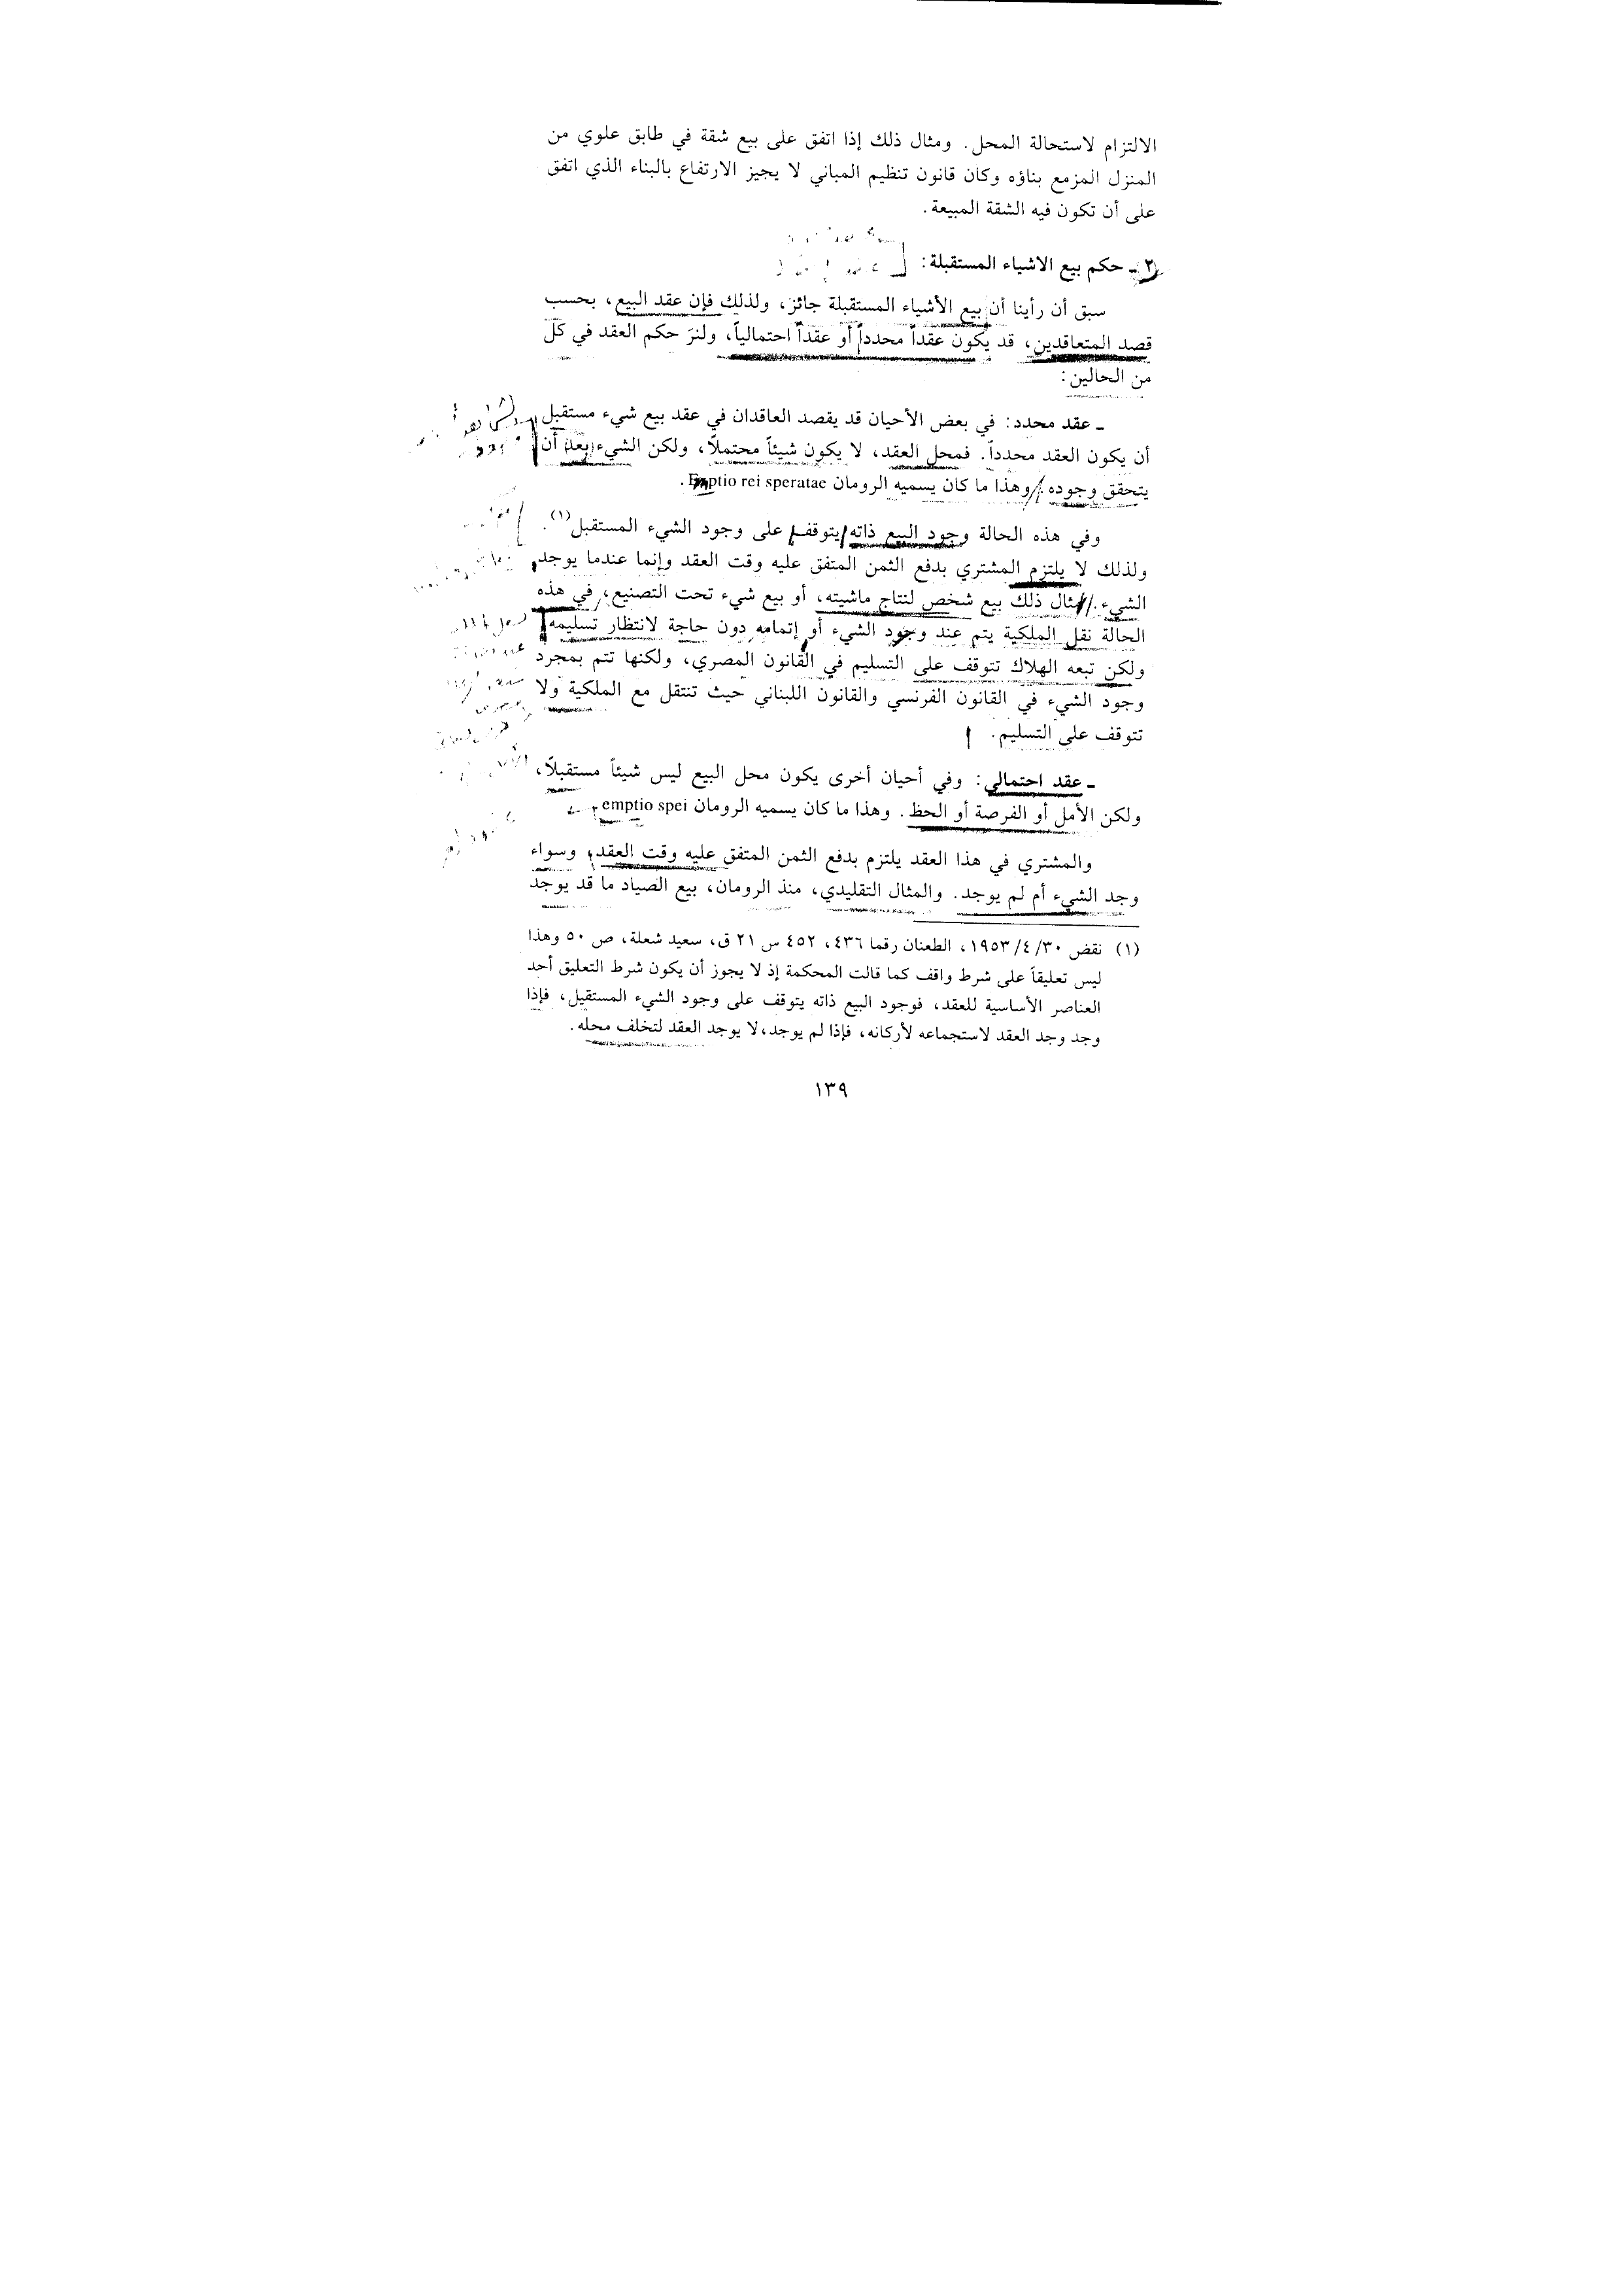 الالتزام لاستحالة المحل. ومثال ذلك إذا اتفق على بيع شقة في طابق علوي من
المنزل المزمع بناؤه وكان قانون تنظيم المباني لا يجيز الارتفاع بالبناء الذي اتفق
على أن تكون فيه الشقة المبيعة.
٢ـ حكم بيع الاشياء المستقبلة:
سبق أن رأينا أن بيع الأشياء المستقبلة جائز، ولذلك فإن عقد البيع، بحسب
قصد المتعاقدين، قد يكون عقداً محدداً أو عقداً احتمالياً، ولنرَ حكم العقد في كل
من الحالين:
ـ عقد محدد: في بعض الأحيان قد يقصد العاقدان في عقد بيع شيء مستقبل
أن يكون العقد محدداً. فمحل العقد، لا يكون شيئاً محتملاً، ولكن الشيء بعد أن
يتحقق وجوده. وهذا ما كان يسميه الرومان Emptio rei speratae.
وفي هذه الحالة وجود البيع ذاته يتوقف على وجود الشيء المستقبل(١).
ولذلك لا يلتزم المشتري بدفع الثمن المتفق عليه وقت العقد وإنما عندما يوجد
الشيء. مثال ذلك بيع شخص لنتاج ماشيته، أو بيع شيء تحت التصنيع، في هذه
الحالة نقل الملكية يتم عند وجود الشيء أو إتمامه دون حاجة لانتظار تسليمه
ولكن تبعه الهلاك تتوقف على التسليم في القانون المصري، ولكنها تتم بمجرد
وجود الشيء في القانون الفرنسي والقانون اللبناني حيث تنتقل مع الملكية ولا
تتوقف على التسليم.
ـ عقد احتمالي: وفي أحيان أخرى يكون محل البيع ليس شيئاً مستقبلاً،
ولكن الأمل أو الفرصة أو الحظ. وهذا ما كان يسميه الرومان emptio spei
والمشتري في هذا العقد يلتزم بدفع الثمن المتفق عليه وقت العقد، وسواء
وجد الشيء أم لم يوجد. والمثال التقليدي، منذ الرومان، بيع الصياد ما قد يوجد
(١) نقض ٣٠/٤/١٩٥٣، الطعنان رقما ٤٣٦، ٤٥٢ س ٢١ ق، سعيد شعلة، ص ٥٠ وهذا
ليس تعليقاً على شرط واقف كما قالت المحكمة إذ لا يجوز أن يكون شرط التعليق أحد
العناصر الأساسية للعقد، فوجود البيع ذاته يتوقف على وجود الشيء المستقيل، فإذا
وجد وجد العقد لاستجماعه لأركانه، فإذا لم يوجد، لا يوجد العقد لتخلف محله.
١٣٩